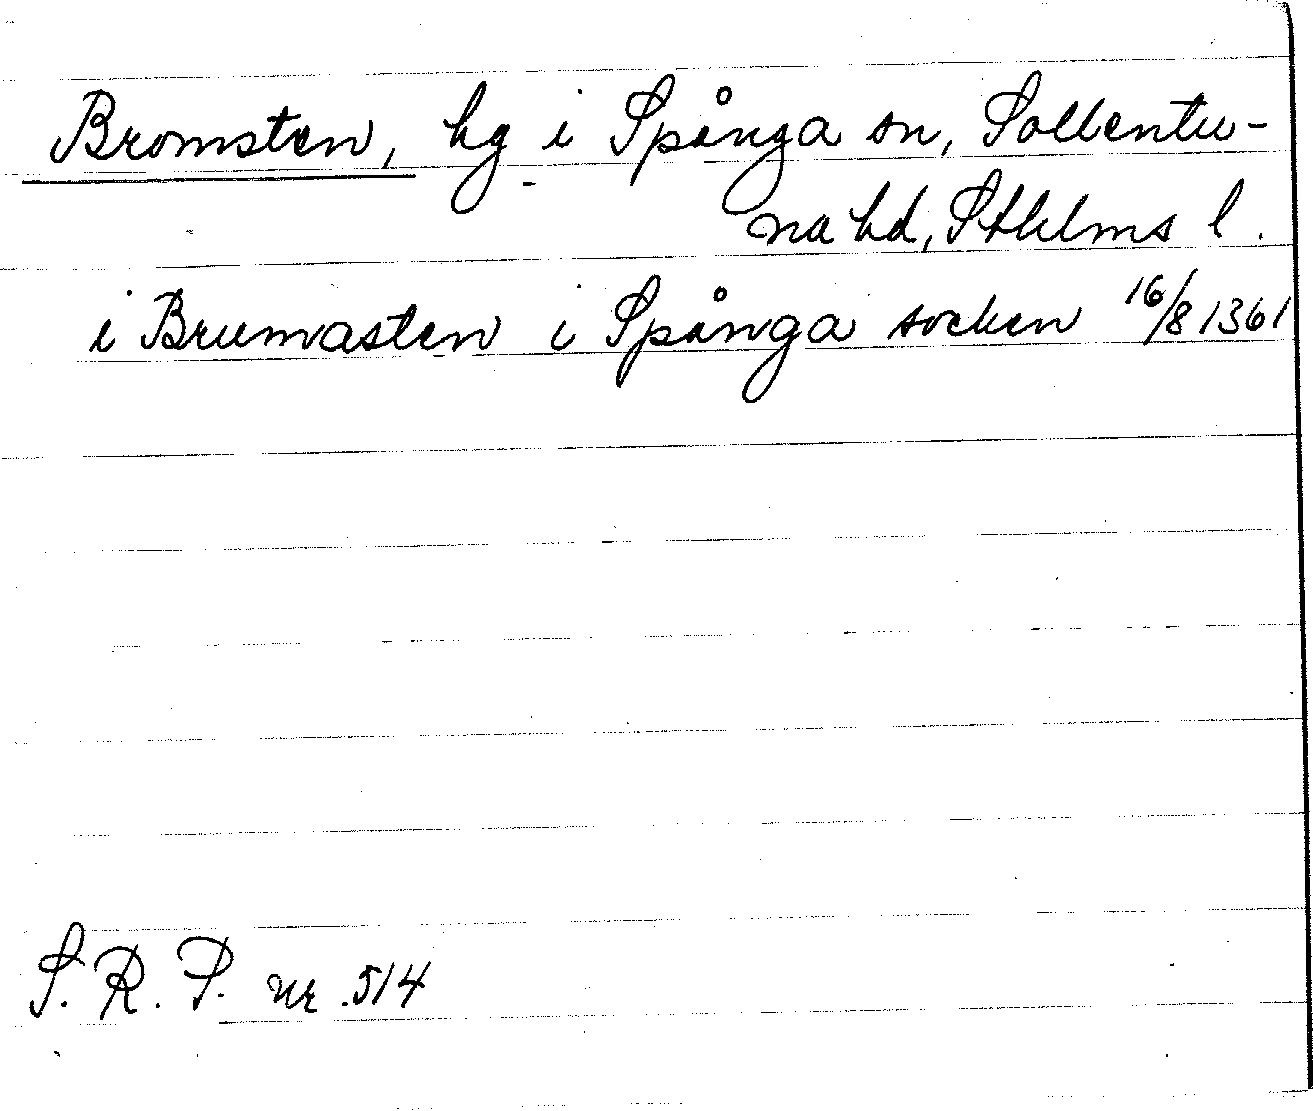 Bromsten, hg i Spånga sn, Sollentu-
na hd, Sthlms l.
i Brumasten i Spånga socken 16/8 1361
S. R. P. nr. 514